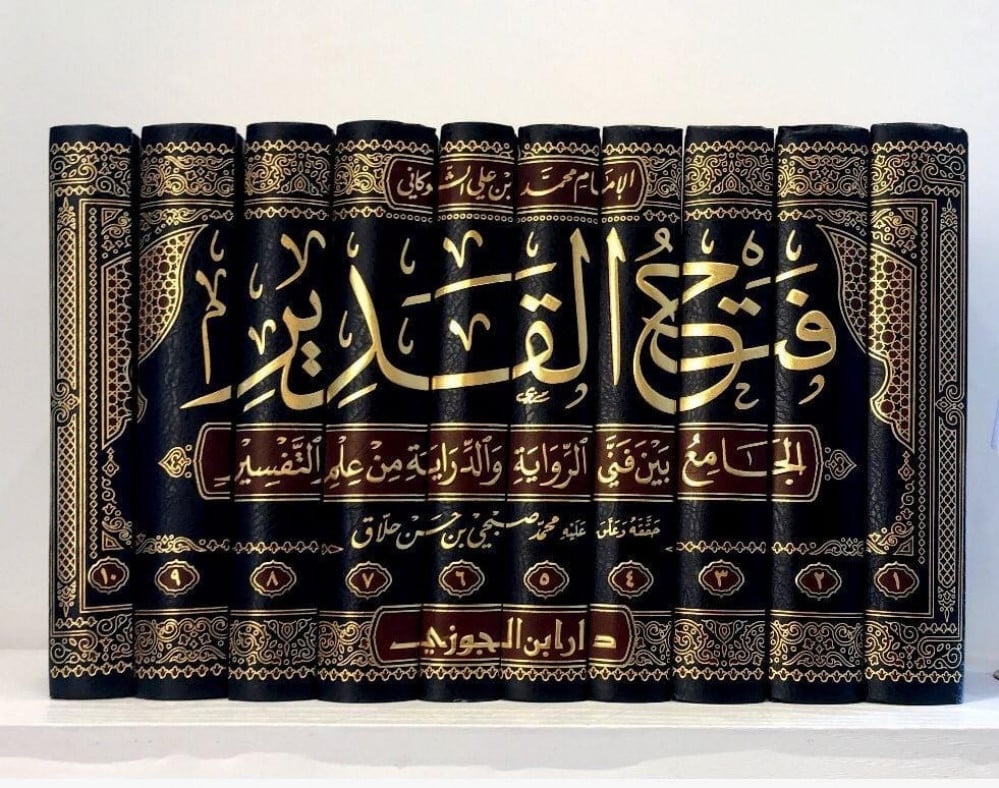 الإمام محمد بن علي الشوكاني
فَتْحُ القَدِيرِ
الجَامِعُ بَيْنَ فَنَّيِ الرِّوَايَةِ وَالدِّرَايَةِ مِنْ عِلْمِ التَّفْسِيرِ
حَقَّقَهُ وَعَلَّقَ عَلَيْهِ محمّد صبحي بن حسن حلّاق
١ ٢ ٣ ٤ ٥ ٦ ٧ ٨ ٩ ١٠
دار ابن الجوزي